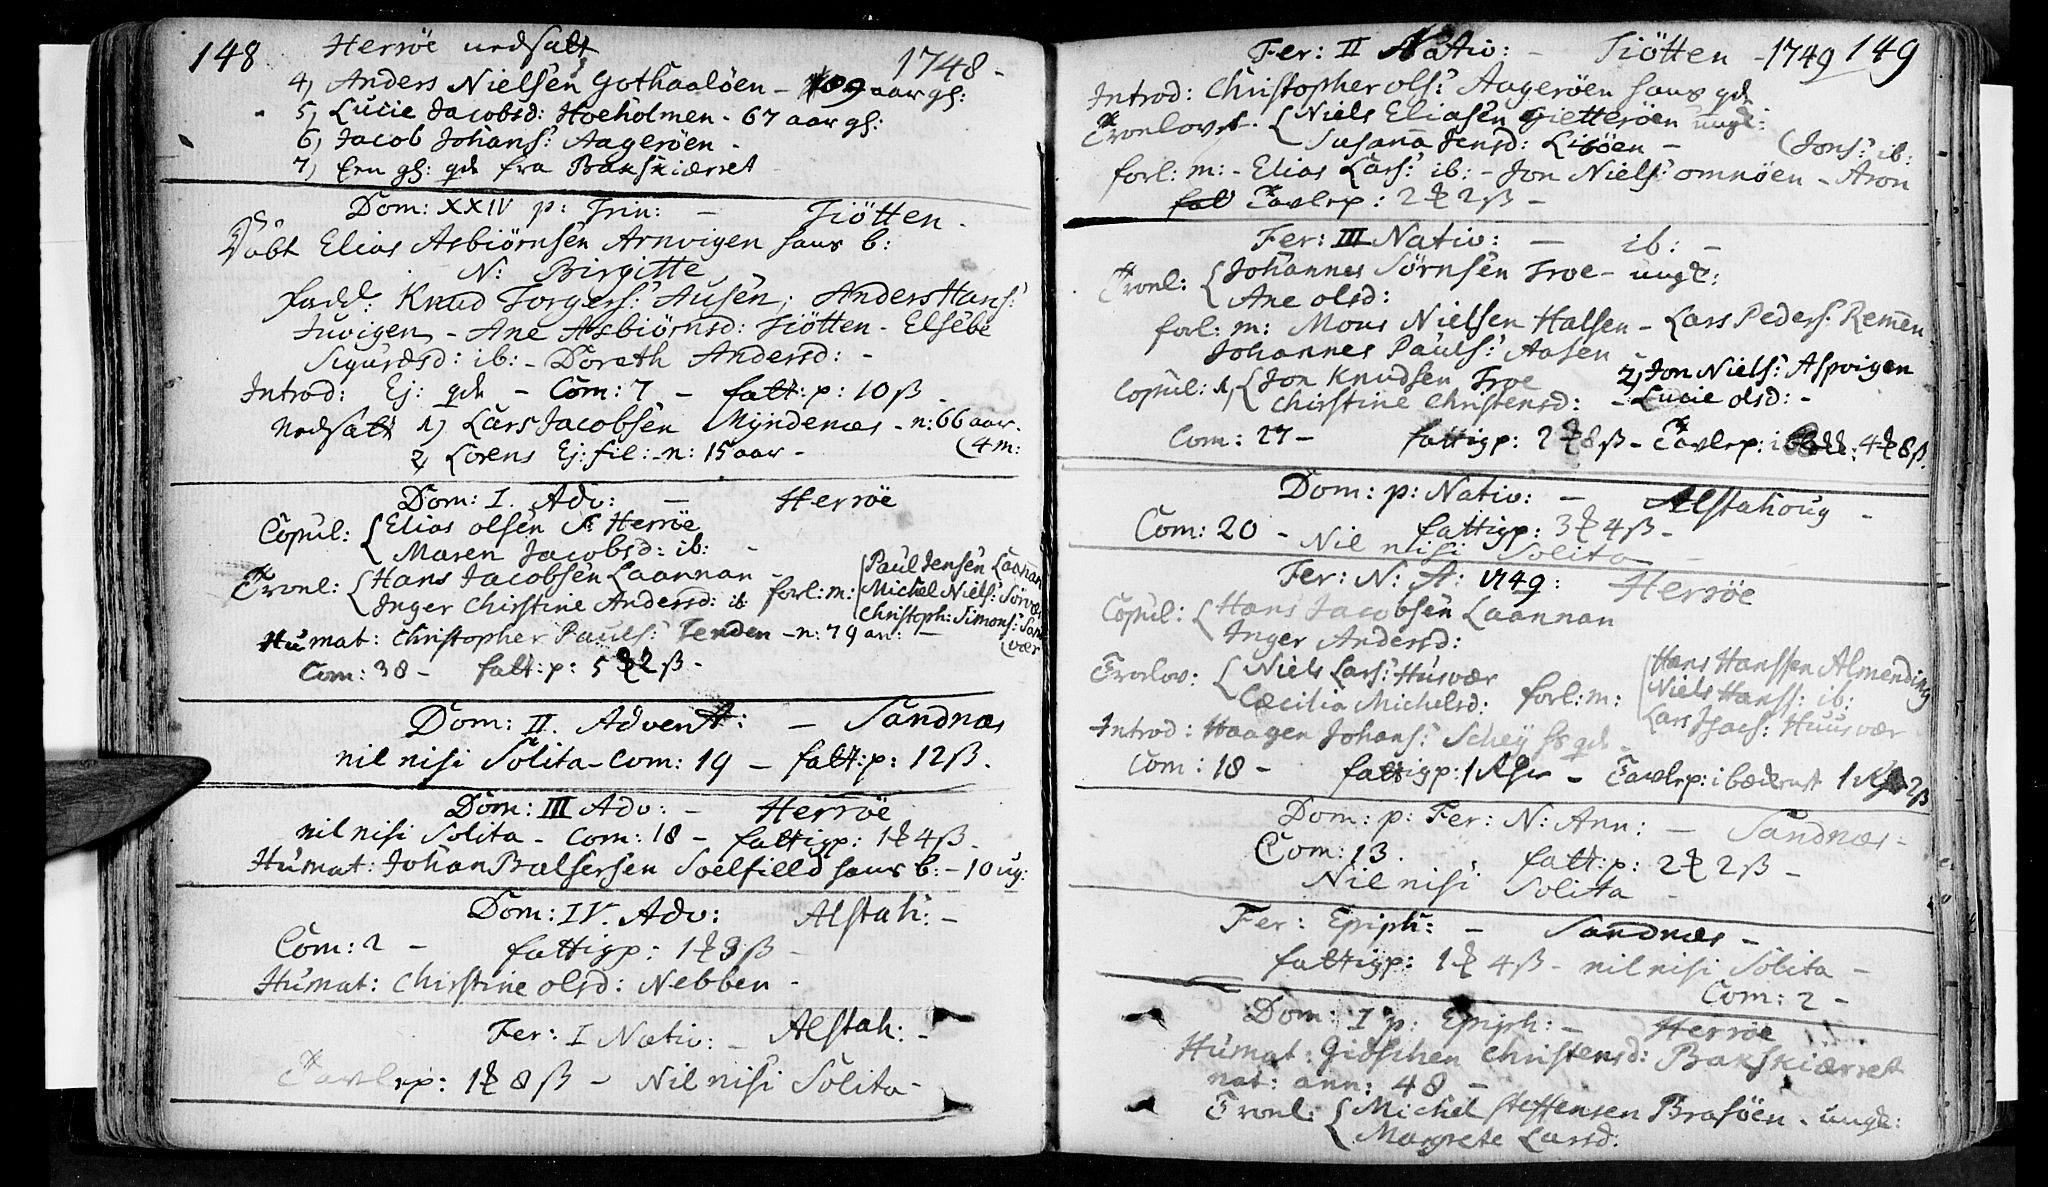 148 Herröe nedsatt 1748 -
4, Anders Nielsen Gothaalöen - 109 aar gl:
5, Lucie Jacobsd: Hoeholmen - 67 aar gl:
6, Jacob Johans: Aageröen -
7, Een gl: qde fra Bakskiærret
Dom: XXIV p: Trin: - Tiötten -
Döbt Elias Asbiörnsen Arnvigen hans b:
N: Birgitte
fadd: Knud Torgers: Ausen, Anders Hans:
Juvigen - Ane Asbiörnsd: Tiötten - Elsebe
Sigurdsd: ib: - Doreth Andersd: -
Introd: Ej: qde - Com: 7 - fatt: p: 10 ß -
Nedsatt 1, Lars Jacobsen Myndenæs - n: 66 aar.
2, Lorens Ej: fil: - n: 15 aar - (4 m:
Dom: I. Adv: - Herröe
Copul: { Elias olsen S: Herröe
Maren Jacobsd: ib: -
Trovl: { Hans Jacobsen Laannan - forl: m: { Paul Jensen Laanan
Inger Chirstine Andersd: ib Michel Niels: Sörvær
Christoph: Simons: San
Humat: Christopher Pauls: Tenden - n: 79 an: - (vær
Com: 38 - fatt: p: 5 ꝃ 2 ß -
Dom: II. Advent: - Sandnæs
nil nisi Solita - Com: 19 - fatt: p: 12 ß -
Dom: III Adv: - Herröe
nil nisi Solita - Com: 18 - fattigp: 1 ꝃ 4 ß -
Humat: Johan Balsersen Soelfielld hans b: - 10 ug:
Dom: IV. Adv: Alstah: -
Com: 2 - fattigp: 1 ꝃ 9 ß -
Humat: Christine olsd: Nebben -
Fer: I Nativ: - Alstah: -
Tavlep: 1 ꝃ 8 ß - Nil nisi Solita -
Fer: II Nativ: - Tiötten - 1749 149
Introd: Christopher ols: Aageröen hans qde
Trovlov: { Niels Eliasen Gietteröen ungk:
Susana Jensd: Lisöen - (Jons: ib:
forl: m: - Elias Lars: ib: - Jon Niels: omnöen - Aron
Tavlep: 2 ꝃ 2 ß -
Fer: III Nativ: - ib: -
Trovl: { Johannes Sörnsen Troe - ungk:
Ane olsd:
forl: m: Mons Nielsen Halsen - Lars Peders: Remen
Johannes Pauls: Aasen -
Copul: 1, { Jon Knudsen Troe 2, Jon Niels: Aspvigen
Chirstine Christensd: - Lucie olsd: -
Com: 27 - fattigp: 2 ꝃ 8 ß - Tavlep: i : 4 ꝃ 8 ß.
Dom: p: Nativ: - Alstahoug -
Com: 20 - fattigp: 3 ꝃ 4 ß -
Nil nisi Solita -
Fer: N: A: 1749: Herröe
Copul: { Hans Jacobsen Laannan
Inger Andersd:
Trovlov: { Niels Lars: Husvær forl: m: { Hans Hanssen Almending
Cæcilia Michelsd: Niels Hanss: ib:
Lars Isachs: Huusvær
Introd: Haagen Johans: Schey hs qde -
Com: 18 - fattigp: 1 - Tavlep: i bæckenet 1 2 ß
Dom: p: Fer: N: Ann: - Sandnæs -
Com: 13. fatt: p: 2 ꝃ 2 ß -
Nil nisi Solita -
Fer: Epiph: - Sandnæs -
fattigp: 1 ꝃ 4 ß - nil nisi Solita -
Com: 2 -
Dom: I p: Epiph: - Herröe
Humat: Giöschen Christensd: Bakskiærret
nat: ann: 48 -
Trovl: { Michel Steffensen Brasöen - ungk:
Margrete Larsd: